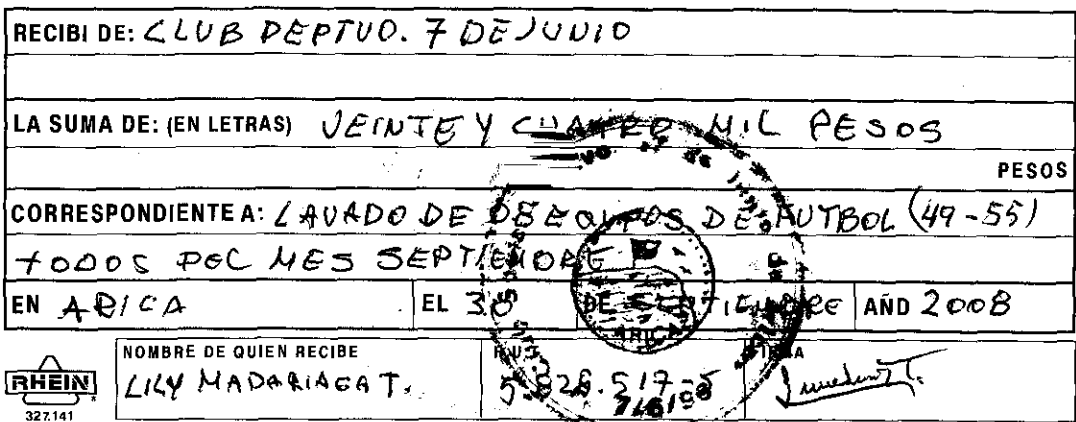 RECIBI DE: CLUB DEPTVO. 7 DE JUNIO
LA SUMA DE: (EN LETRAS) VEINTE Y CUATRO MIL PESOS
PESOS
CORRESPONDIENTE A: LAVADO DE EQUIPOS DE FUTBOL (49-55)
TODOS DEL MES SEPTIEMBRE
EN ARICA EL 30 DE SEPTIEMBRE AÑO 2008
NOMBRE DE QUIEN RECIBE R.U.T. FIRMA
LILY MADARIAGA T.
RHEIN
327.141
ARICA
7/6/98